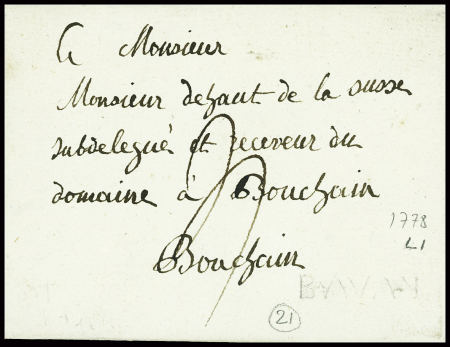 A Monsieur
Monsieur dehaut de la susse
subdelegué et receveur du
domaine à Bouchain
Bouchain
1778
L1
21